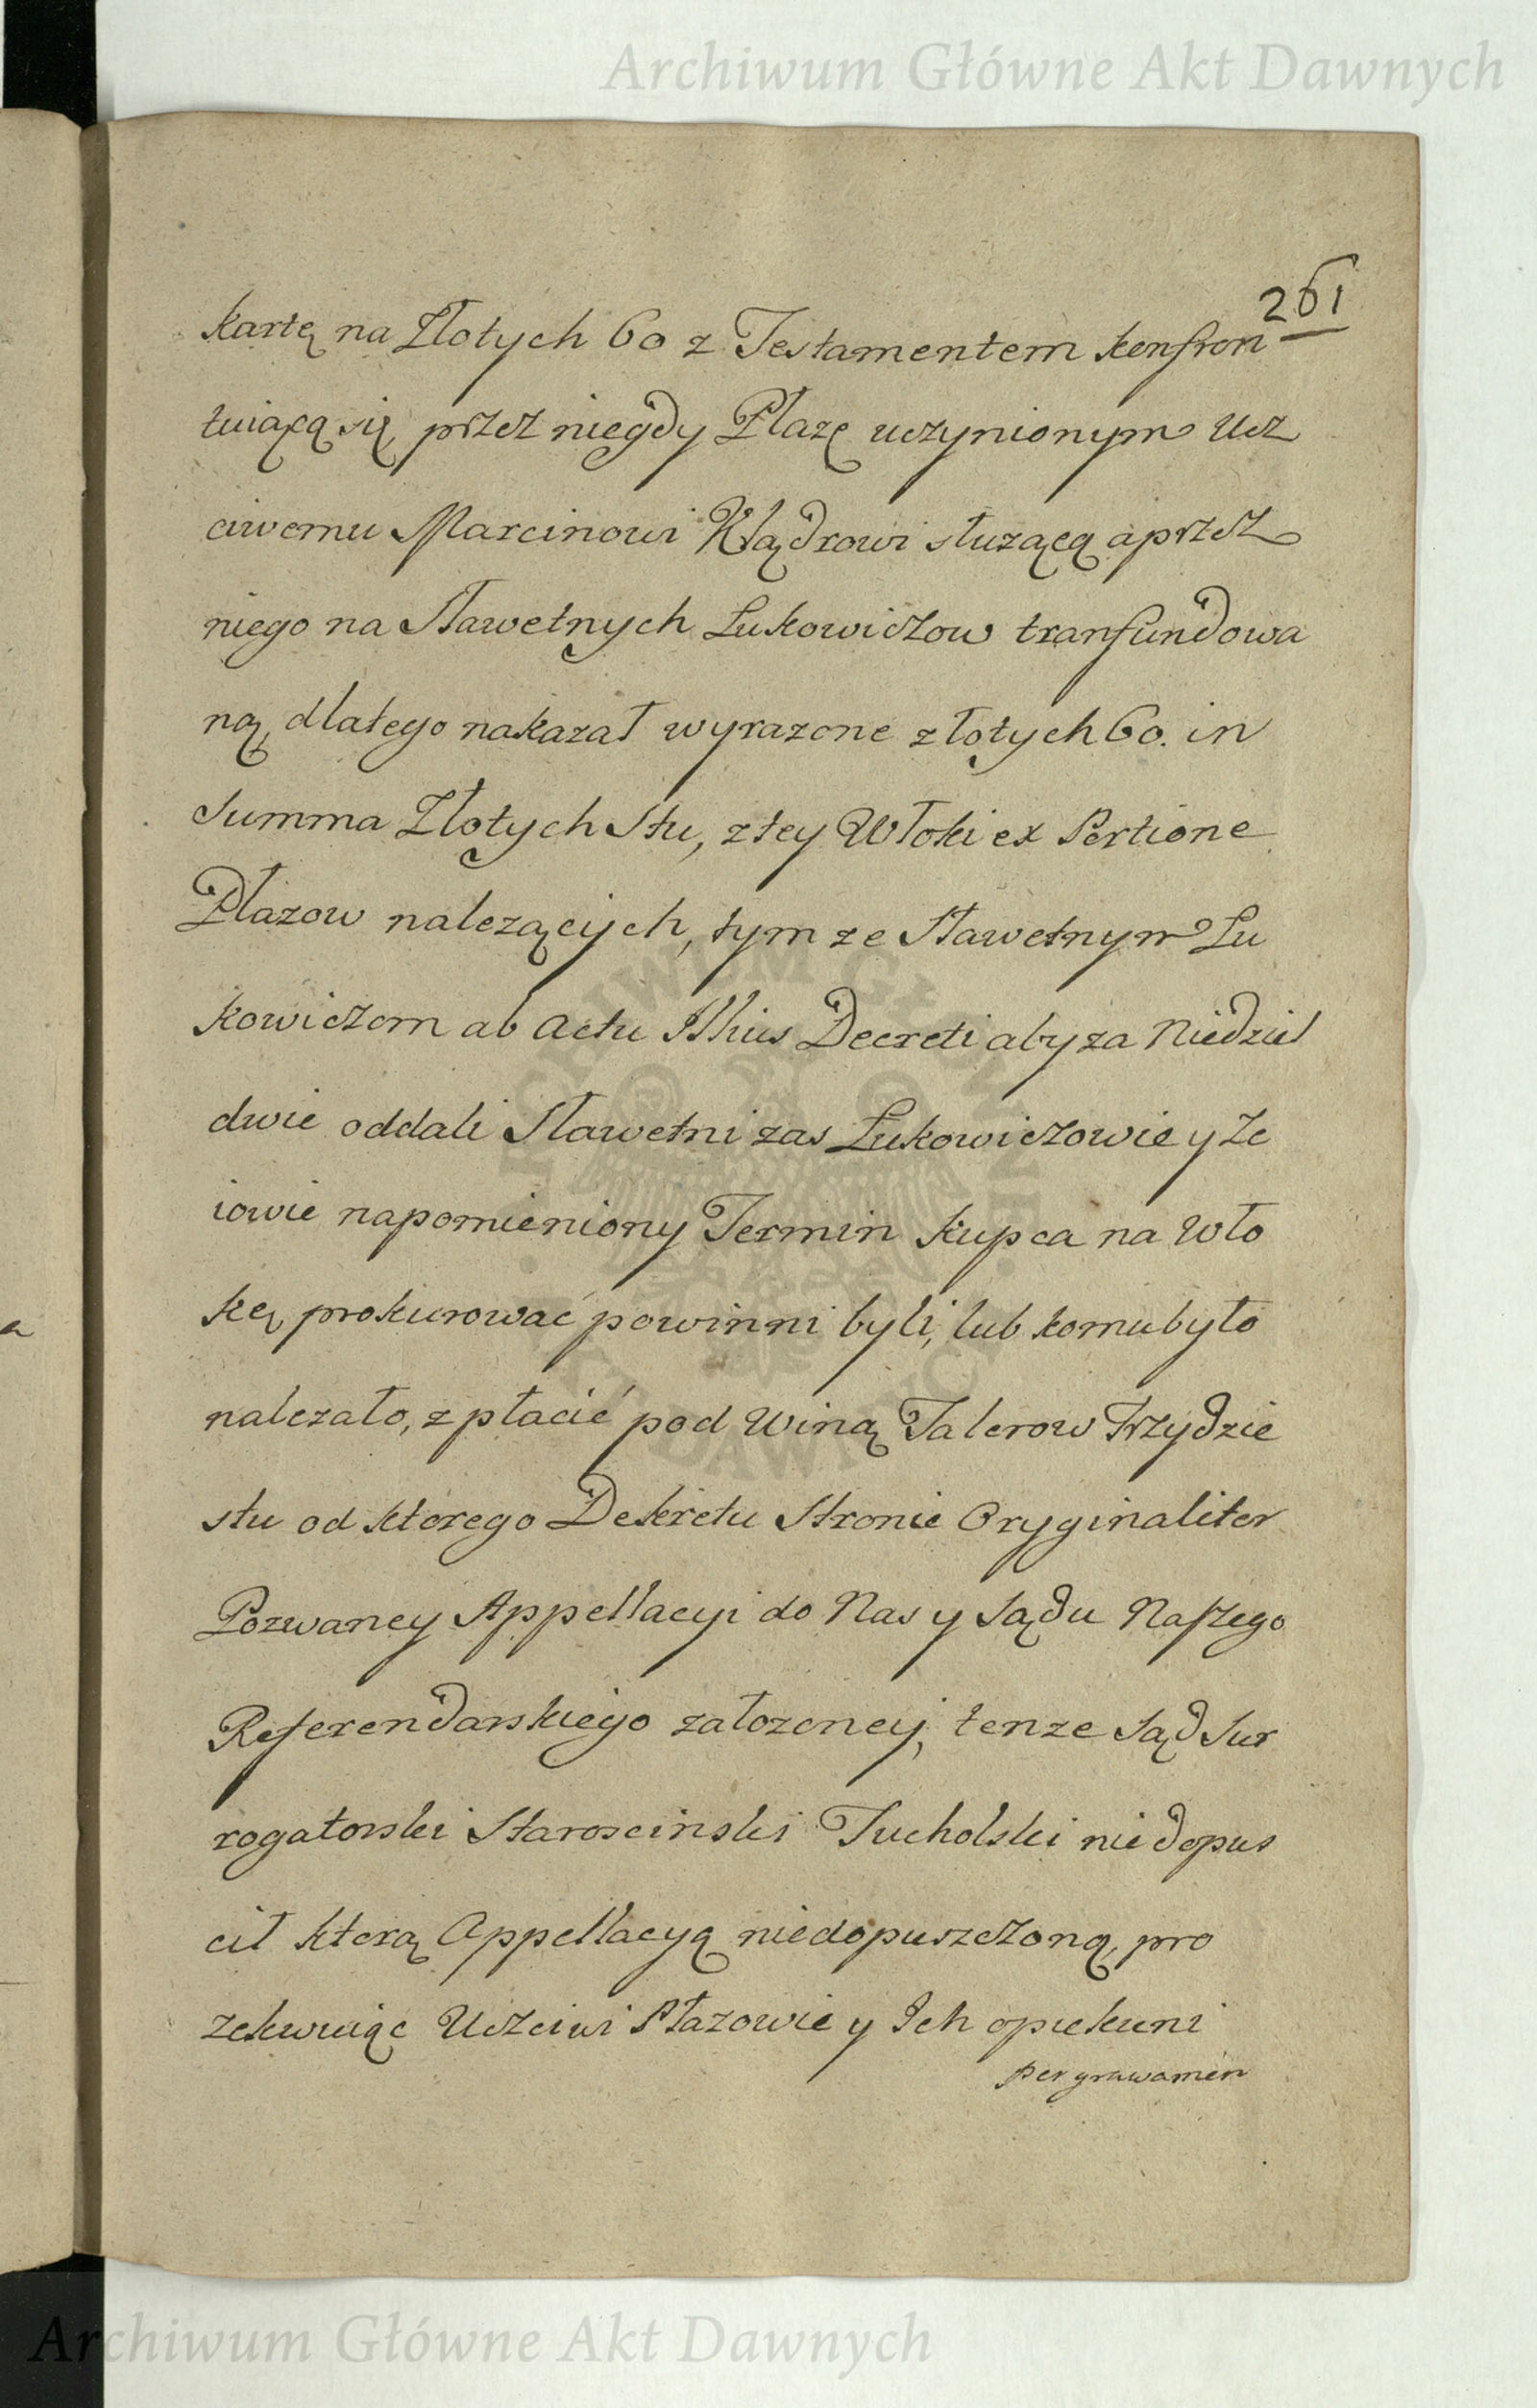 Archiwum Główne Akt Dawnych
261
kartę na Złotych 60 z Testamentem konfron
tuiącą się przez niegdy Płazę uczynionym Ucz
ciwemu Marcinowi Klądrowi służącą a przez
niego na Sławetnych Lukowiczow tranfundowa
ną, dlatego nakazał wyrazone złotych 60. in
Summa Złotych Stu, z tey Włoki ex Portione
Płazow nalezących, tym ze Sławetnym Lu
kowiczom ab Actu Illius Decreti aby za Niedziel
dwie oddali Sławetni zas Lukowiczowie y Ze
iowie napomieniony Termin kupca na Wło
kę prokurować powinni byli, lub komu było
nalezało, zpłacić pod Winą Talerow Trzydzie
stu od ktorego Dekretu Stronie Oryginaliter
Pozwaney Appellacyi do Nas y Sądu Naszego
Referendarskiego załozoney, tenze Sąd Sur
rogatorski Staroscinski Tucholski niedopus
cił ktorą Appellacyą niedopuszczoną, pro
zekwuiąc Uczciwi Płazowie y Ich opiekuni
per grawamen
Archiwum Główne Akt Dawnych